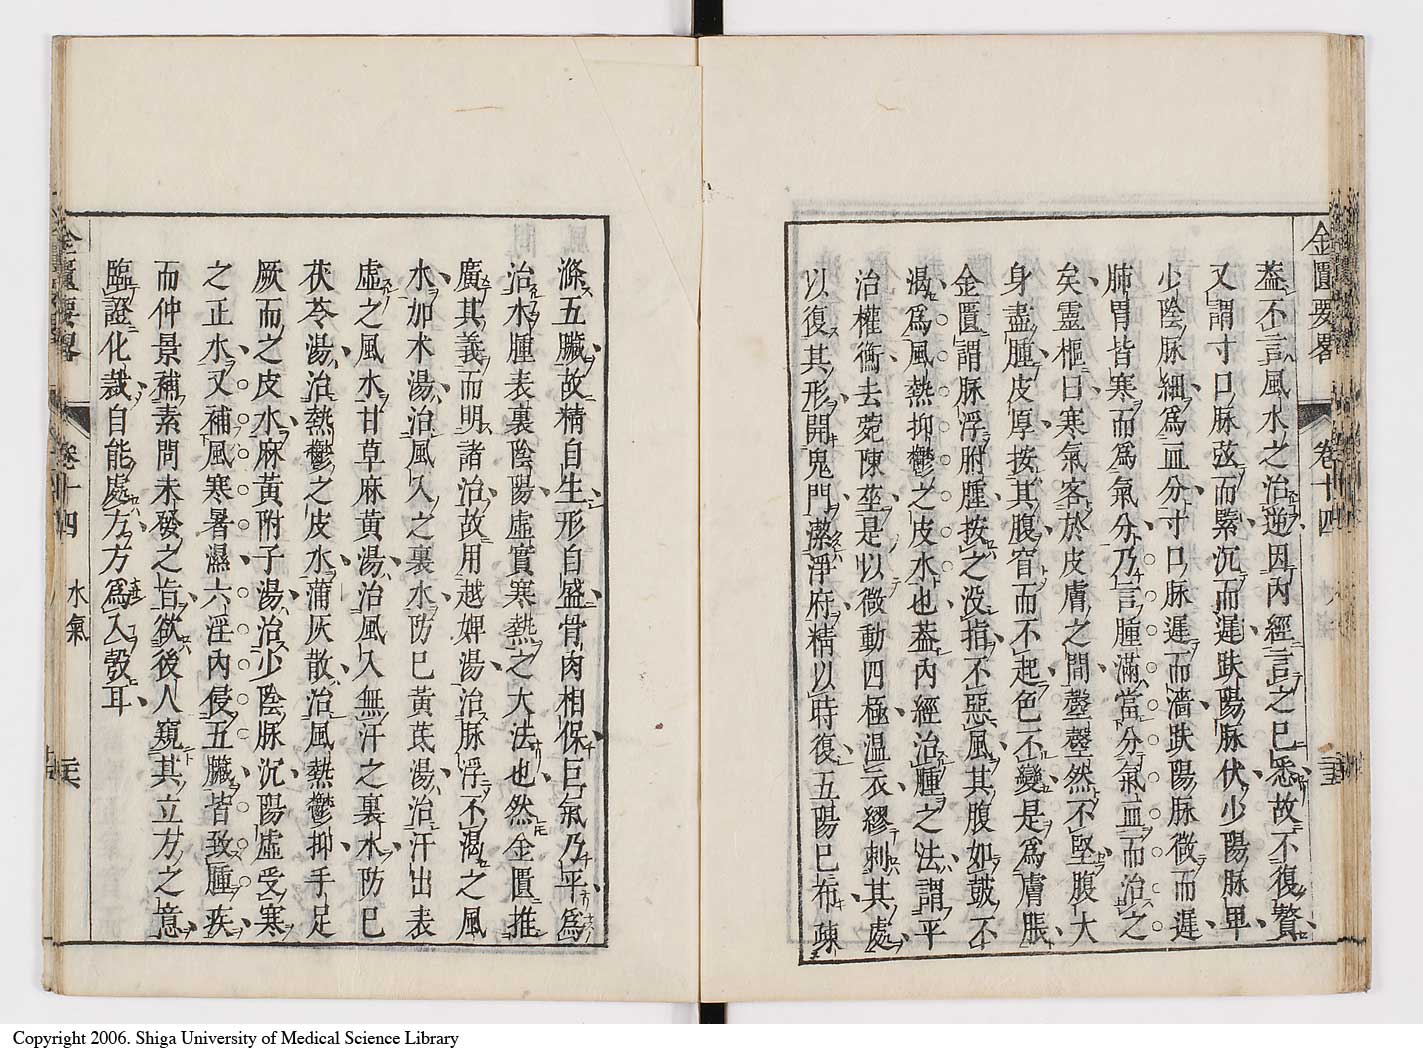 金匱要畧
卷十四
蓋不言風水之治逆因內經言之已悉故不復贅
又謂寸口脉弦而緊沉而遲趺陽脉伏少陽脉卑
少陰脉細爲血分寸口脉遲而濇趺陽脉微而遲
肺胃皆寒而爲氣分乃言腫滿當分氣血而治之
矣靈樞曰寒氣客於皮膚之間𪔣𪔣然不堅腹大
身盡腫皮厚按其腹窅而不起色不變是爲膚脹
金匱謂脉浮胕腫按之没指不惡風其腹如鼓不
渴爲風熱抑鬱之皮水也蓋內經治腫之法謂平
治權衡去菀陳莝是以微動四極温衣繆刺其處
以復其形開鬼門潔淨府精以時復五陽已布疎
滌五臟故精自生形自盛骨肉相保巨氣乃平爲
治水腫表裏陰陽虛實寒熱之大法也然金匱推
廣其義而明諸治故用越婢湯治脉浮不渴之風
水加术湯治風入之裏水防已黃茋湯治汗出表
虛之風水甘草麻黃湯治風入無汗之裏水防已
茯苓湯治熱鬱之皮水蒲灰散治風熱鬱抑手足
厥而之皮水麻黃附子湯治少陰脉沉陽虛受寒
之正水又補風寒暑濕六淫內侵五臟皆致腫疾
而仲景補素問未發之旨欲後人窺其立方之意
臨證化裁自能處方方爲入彀耳
金匱要畧
卷十四
水氣
Copyright 2006. Shiga University of Medical Science Library